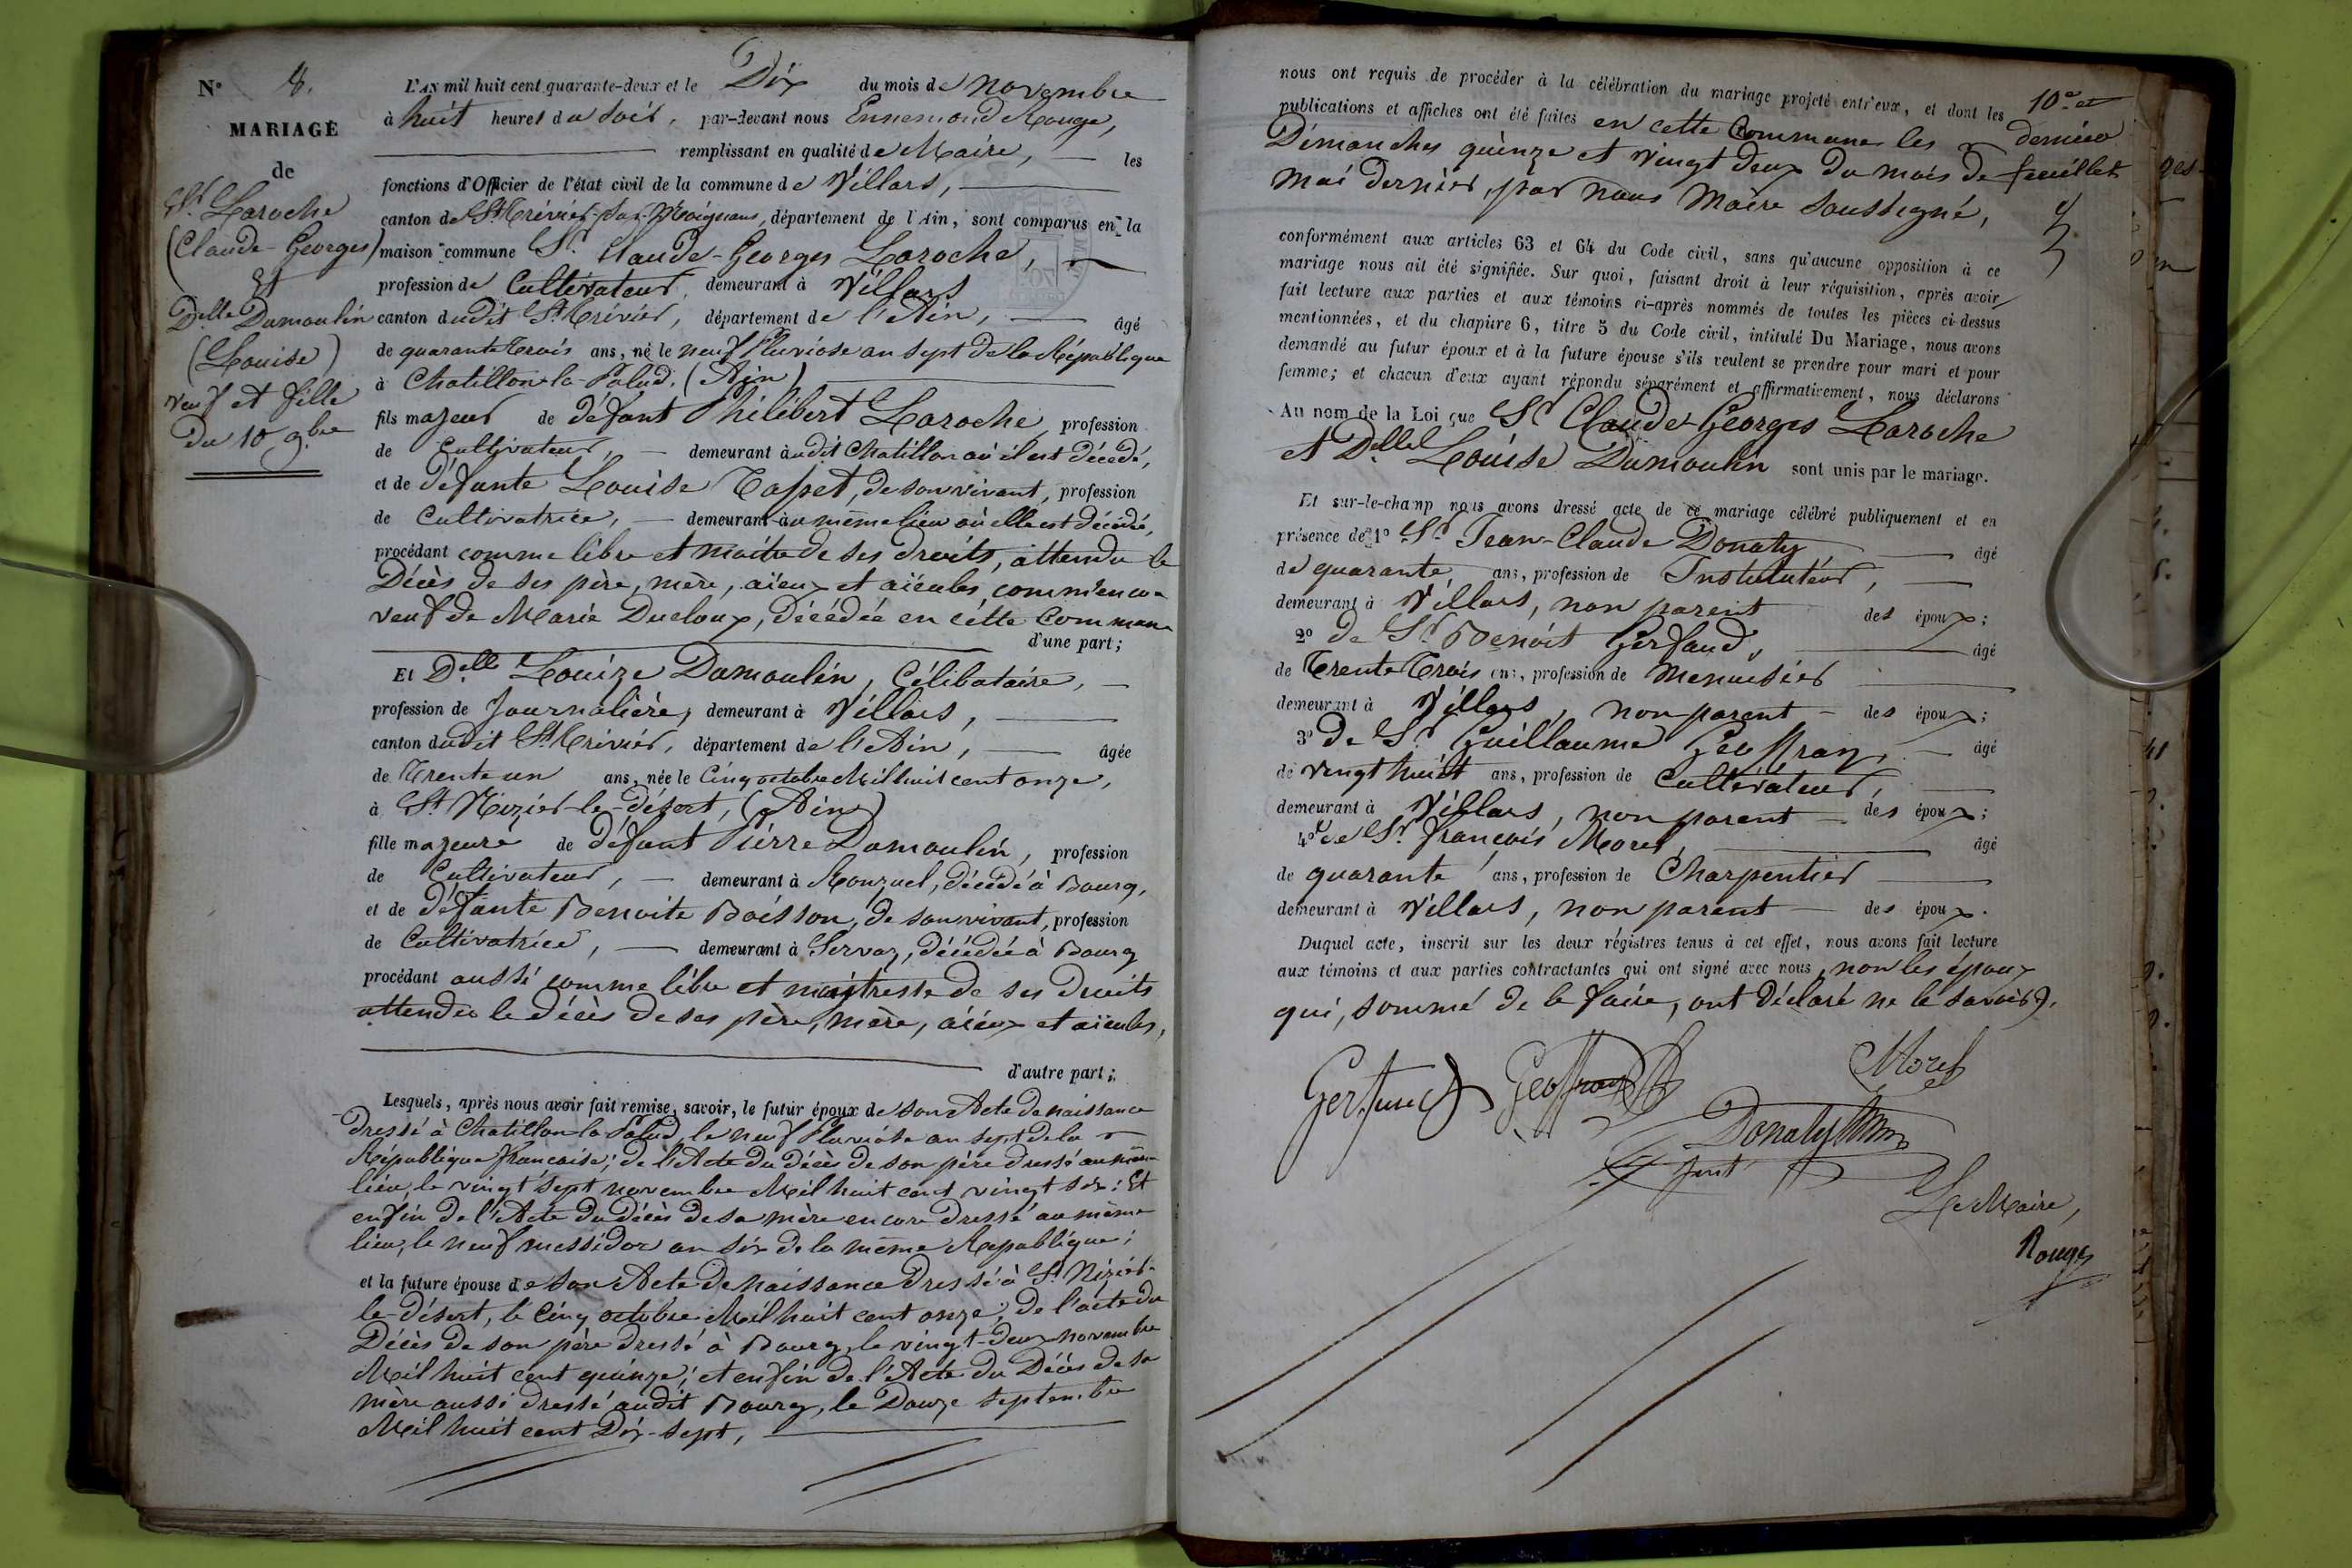 N° 8.
MARIAGE
de
Sr. Laroche
(Claude-Georges)
Et
Delle Dumoulin
(Louise)
veuf et fille
du 10 9.bre
L'AN mil huit cent quarante-deux et le Dix du mois de novembre
à huit heures du soir, par-devant nous Ennemond Rouge,
remplissant en qualité de Maire, les
fonctions d'Officier de l'état civil de la commune de Villars,
canton de St. Trévier-sur-Moignans, département de l'Ain, sont comparus en la
maison commune Sr. Claude-Georges Laroche,
profession de Cultivateur, demeurant à Villars
canton dudit St. Trivier, département de l'Ain, âgé
de quarante trois ans, né le neuf Pluviose an sept de la République
à Chatillon-la-Palud, (Ain)
fils majeur de défunt Philibert Laroche, profession
de Cultivateur, demeurant audit Chatillon où il est décédé,
et de défunte Louise Tasset, de son vivant, profession
de Cultivatrice, demeurant au même lieu où elle est décédé,
procédant comme libre et maitre de ses droits, attendu le
Décès de ses père, mère, aïeux et aïeules, comm'enco-
veuf de Marie Ducloux, décédée en cette Commune
d'une part;
Et Delle Louize Dumoulin, Célibataire,
profession de Journalière, demeurant à Villars,
canton dudit St. Trivier, département de l'Ain, âgée
de Trente un ans, née le Cinq octobre Mil huit cent onze,
à St. Nizier-le-désert, (Ain)
fille majeure de défunt Pierre Dumoulin, profession
de Cultivateur, demeurant à Ronzuel, décédé à Bourg,
et de défunte Benoite Boisson, de son vivant, profession
de Cultivatrice, demeurant à Servaz, décédée à Bourg
procédant aussi comme libre et maitresse de ses droits
attendu le décès de ses père, mère, aïeux et aïeules,
d'autre part;
Lesquels, après nous avoir fait remise, savoir, le futur époux de son Acte de naissance
dressé à Chatillon la Palud, le neuf Pluviôse an sept de la
République francaise; de l'Acte du décès de son père dressé au mêm-
lieu, le vingt sept novembre Mil huit cent vingt six; Et
enfin de l'Acte du décès de sa mère encore dressé au même
lieu, le neuf messidor an six de la même République;
et la future épouse de son Acte de naissance dressé à St. Nizier-
le-désert, le Cinq octobre Mil huit cent onze; de l'acte du
Décès de son père dressé à Bourg, le vingt-deux novembre
Mil huit cent quinze; et enfin de l'Acte du Décès de sa
mère aussi dressé audit Bourg, le Douze septembre
Mil huit cent Dix-sept,
nous ont requis de procéder à la célébration du mariage projeté entr'eux, et dont les
publications et affiches ont été faites en cette Commune les
Dimanches quinze et vingt deux du mois de
Mai dernier, par nous Maire soussigné,
10e et
dernier
feuillet
conformément aux articles 63 et 64 du Code civil, sans qu'aucune opposition à ce
mariage nous ait été signifiée. Sur quoi, faisant droit à leur réquisition, après avoir
fait lecture aux parties et aux témoins ci-après nommés de toutes les pièces ci-dessus
mentionnées, et du chapitre 6, titre 5 du Code civil, intitulé Du Mariage, nous avons
demandé au futur époux et à la future épouse s'ils veulent se prendre pour mari et pour
femme; et chacun d'eux ayant répondu séparément et affirmativement, nous déclarons
Au nom de la Loi que Sr Claude-Georges Laroche
et Delle Louise Dumoulin sont unis par le mariage.
Et sur-le-champ nous avons dressé acte de ce mariage célébré publiquement et en
présence de 1° Sr. Jean-Claude Donaty, âgé
de quarante ans, profession de Instituteur,
demeurant à Villars, non parent des époux;
2° de Sr. Benoit Gerfaud, âgé
de Trente Trois ans, profession de Menuisier
demeurant à Villars, non parent des époux;
3° de Sr Guillaume Geoffray, âgé
de vingt huit ans, profession de Cultivateur,
demeurant à Villars, non parent des époux;
4° de Sr. françois Morel, âgé
de quarante ans, profession de Charpentier
demeurant à Villars, non parent des époux.
Duquel acte, inscrit sur les deux régistres tenus à cet effet, nous avons fait lecture
aux témoins et aux parties contractantes qui ont signé avec nous, non les époux
qui, sommé de le faire, ont déclaré ne le savoir).
Gerfaud Geoffray Morel
Donaty
Le Maire,
Rouge